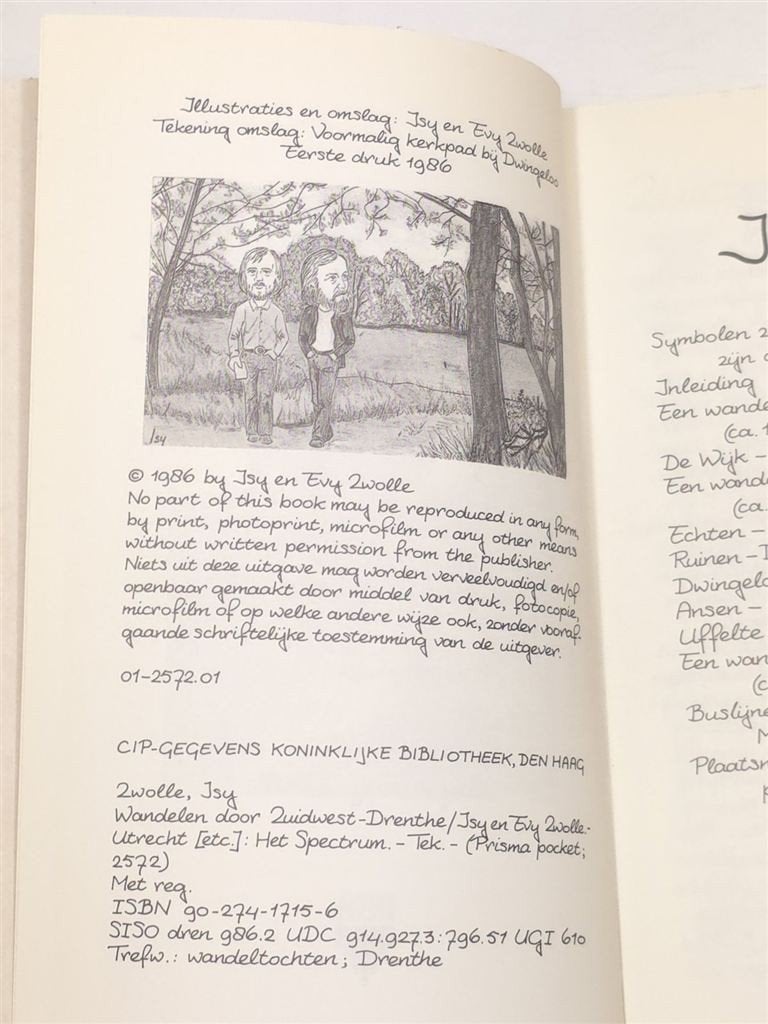 Illustraties en omslag: Isy en Evy Zwolle
Tekening omslag: Voormalig kerkpad bij Dwingeloo
Eerste druk 1986
Isy
© 1986 by Isy en Evy Zwolle
No part of this book may be reproduced in any form,
by print, photoprint, microfilm or any other means
without written permission from the publisher.
Niets uit deze uitgave mag worden verveelvoudigd en/of
openbaar gemaakt door middel van druk, fotocopie,
microfilm of op welke andere wijze ook, zonder vooraf-
gaande schriftelijke toestemming van de uitgever.
01-2572.01
CIP-GEGEVENS KONINKLIJKE BIBLIOTHEEK, DEN HAAG
Zwolle, Isy
Wandelen door Zuidwest-Drenthe/Isy en Evy Zwolle.-
Utrecht [etc.]: Het Spectrum. - Tek. - (Prisma pocket;
2572)
Met reg.
ISBN 90-274-1715-6
SISO dren 986.2 UDC 914.927.3:796.51 UGI 610
Trefw.: wandeltochten; Drenthe
I
Symbolen
zijn
Inleiding
Een wande
(ca. 1
De Wijk -
Een wand
(ca.
Echten -
Ruinen -
Dwingelo
Ansen -
Uffelte
Een wan
(c
Buslijne
M
Plaatsn